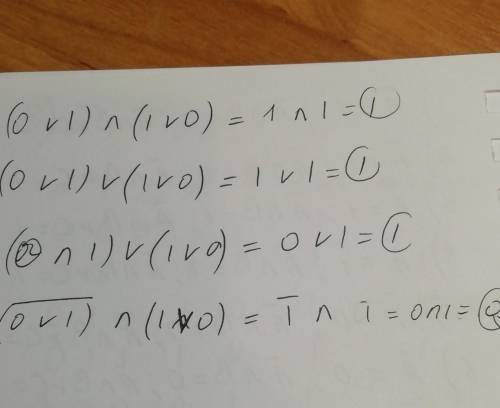 (0 ∨ 1) ∧ (1 ∨ 0) = 1 ∧ 1 = 1
(0 ∨ 1) ∨ (1 ∨ 0) = 1 ∨ 1 = 1
(0 ∧ 1) ∨ (1 ∨ 0) = 0 ∨ 1 = 1
(0 ∨ 1)̅ ∧ (1 ∨ 0) = 1̅ ∧ 1 = 0 ∧ 1 = 0